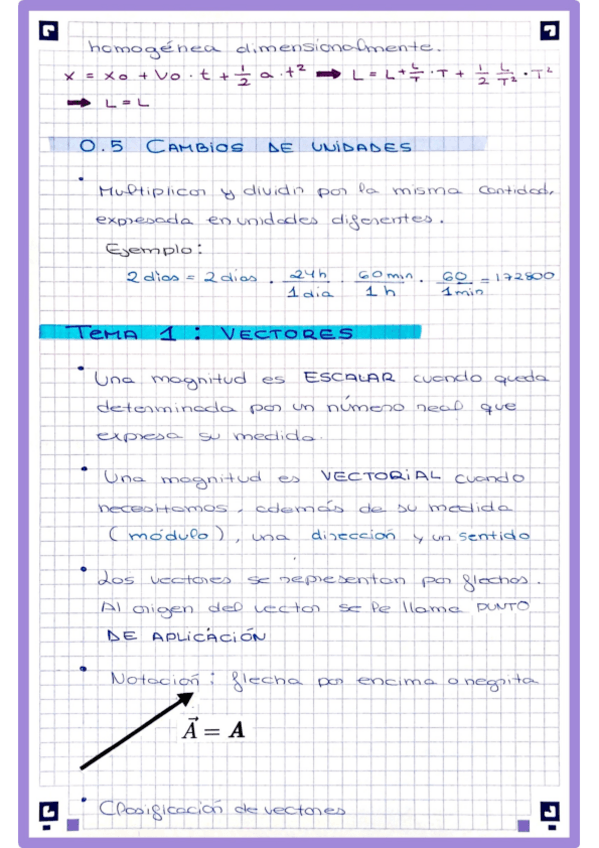 homogénea dimensionalmente.
x = x0 + v0 · t + 1/2 a · t² ➡ L = L + L/T · T + 1/2 L/T² · T²
➡ L = L
0.5 CAMBIOS DE UNIDADES
· Multiplicar y dividir por la misma cantidad,
expresada en unidades diferentes.
Ejemplo:
2 días = 2 días · 24h/1 dia · 60 min/1 h · 60/1 min = 172800
TEMA 1 : VECTORES
· Una magnitud es ESCALAR cuando queda
determinada por un número real que
expresa su medida.
· Una magnitud es VECTORIAL cuando
necesitamos, además de su medida
(módulo), una dirección y un sentido
· Los vectores se representan por flechas.
Al origen del vector se le llama PUNTO
DE APLICACIÓN
· Notación: flecha por encima o negrita
A⃗ = A
· Clasificación de vectores